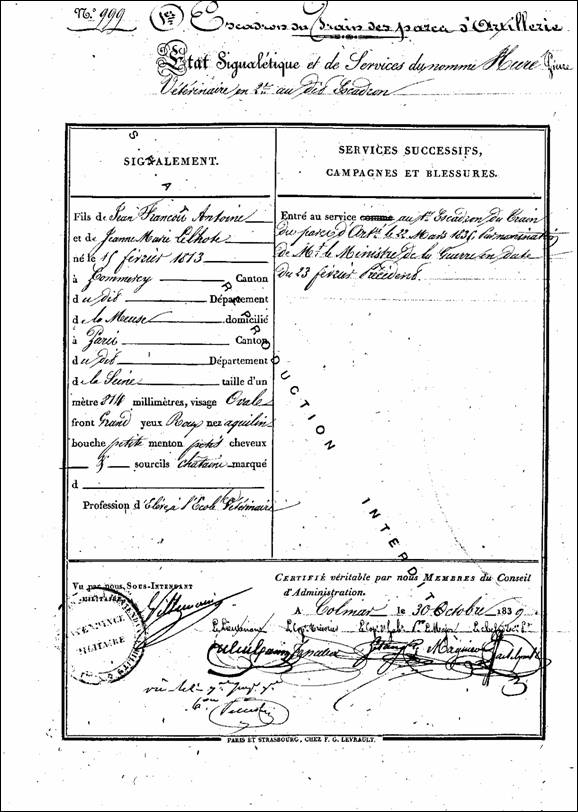 N.° 999 1er Escadron du Train des parcs d'Artillerie
État Signalétique et de Services du nommé Hure Pierre
Vétérinaire en 2e au dit Escadron
SIGNALEMENT.
Fils de Jean François Antoine
et de Jeanne Marie Lelhote
né le 15 février 1813
à Commercy Canton
du dit Département
de la Meuse domicilié
à Paris Canton
du dit Département
de la Seine taille d'un
mètre 814 millimètres, visage Ovale
front Grand yeux Roux nez aquilin
bouche petite menton petit cheveux
et sourcils châtains marqué
d
Profession d'Elève à l'Ecole Vétérinaire
SERVICES SUCCESSIFS,
CAMPAGNES ET BLESSURES.
Entré au service comme au 1er Escadron du Train
des parcs d'Art.ie le 22 Mars 1836, nomination
de Mr. le Ministre de la Guerre en date
du 23 février Précédent.
REPRODUCTION INTERDITE
Vu par nous Sous-Intendant
militaire
INTENDANCE
MILITAIRE
Certifié véritable par nous Membres du Conseil
d'Administration.
A Colmar le 30 Octobre 1839
Le Lieutenant Le Cap. Trésorier
PARIS ET STRASBOURG, CHEZ F. G. LEVRAULT.